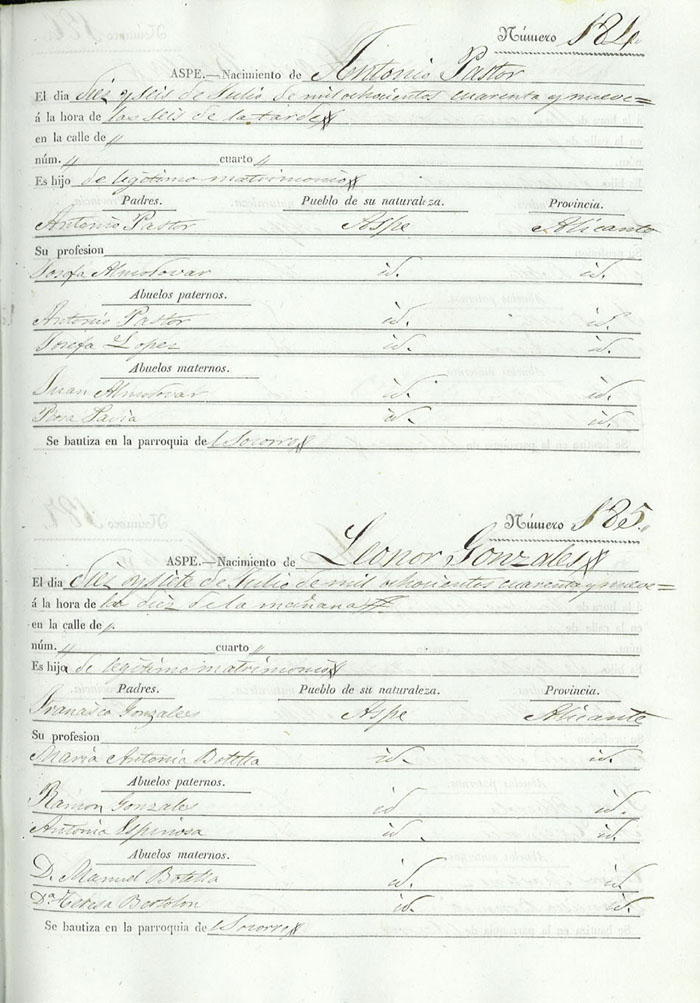 Número 184.
ASPE.—Nacimiento de Antonio Pastor
El dia diez y seis de Julio de mil ochocientos cuarenta y nueve=
á la hora de las seis de la tarde
en la calle de "
núm. " cuarto "
Es hijo de legitimo matrimonio
Padres. Pueblo de su naturaleza. Provincia.
Antonio Pastor Aspe Alicante
Su profesion
Josefa Almodovar id. id.
Abuelos paternos.
Antonio Pastor id. id.
Josefa Lopez id. id.
Abuelos maternos.
Juan Almodovar id. id.
Pavia id. id.
Se bautiza en la parroquia del Socorro
Número 185.
ASPE.—Nacimiento de Leonor Gonzales
El dia diez y siete de Julio de mil ochocientos cuarenta y nueve=
á la hora de las diez de la mañana
en la calle de "
núm. " cuarto "
Es hija de legitimo matrimonio
Padres. Pueblo de su naturaleza. Provincia.
Francisco Gonzales Aspe Alicante
Su profesion
Maria Antonia Botella id. id.
Abuelos paternos.
Ramon Gonzales id id.
Antonia Espinosa id. id.
Abuelos maternos.
D. Manuel Botella id. id.
Dª Teresa id. id.
Se bautiza en la parroquia del Socorro